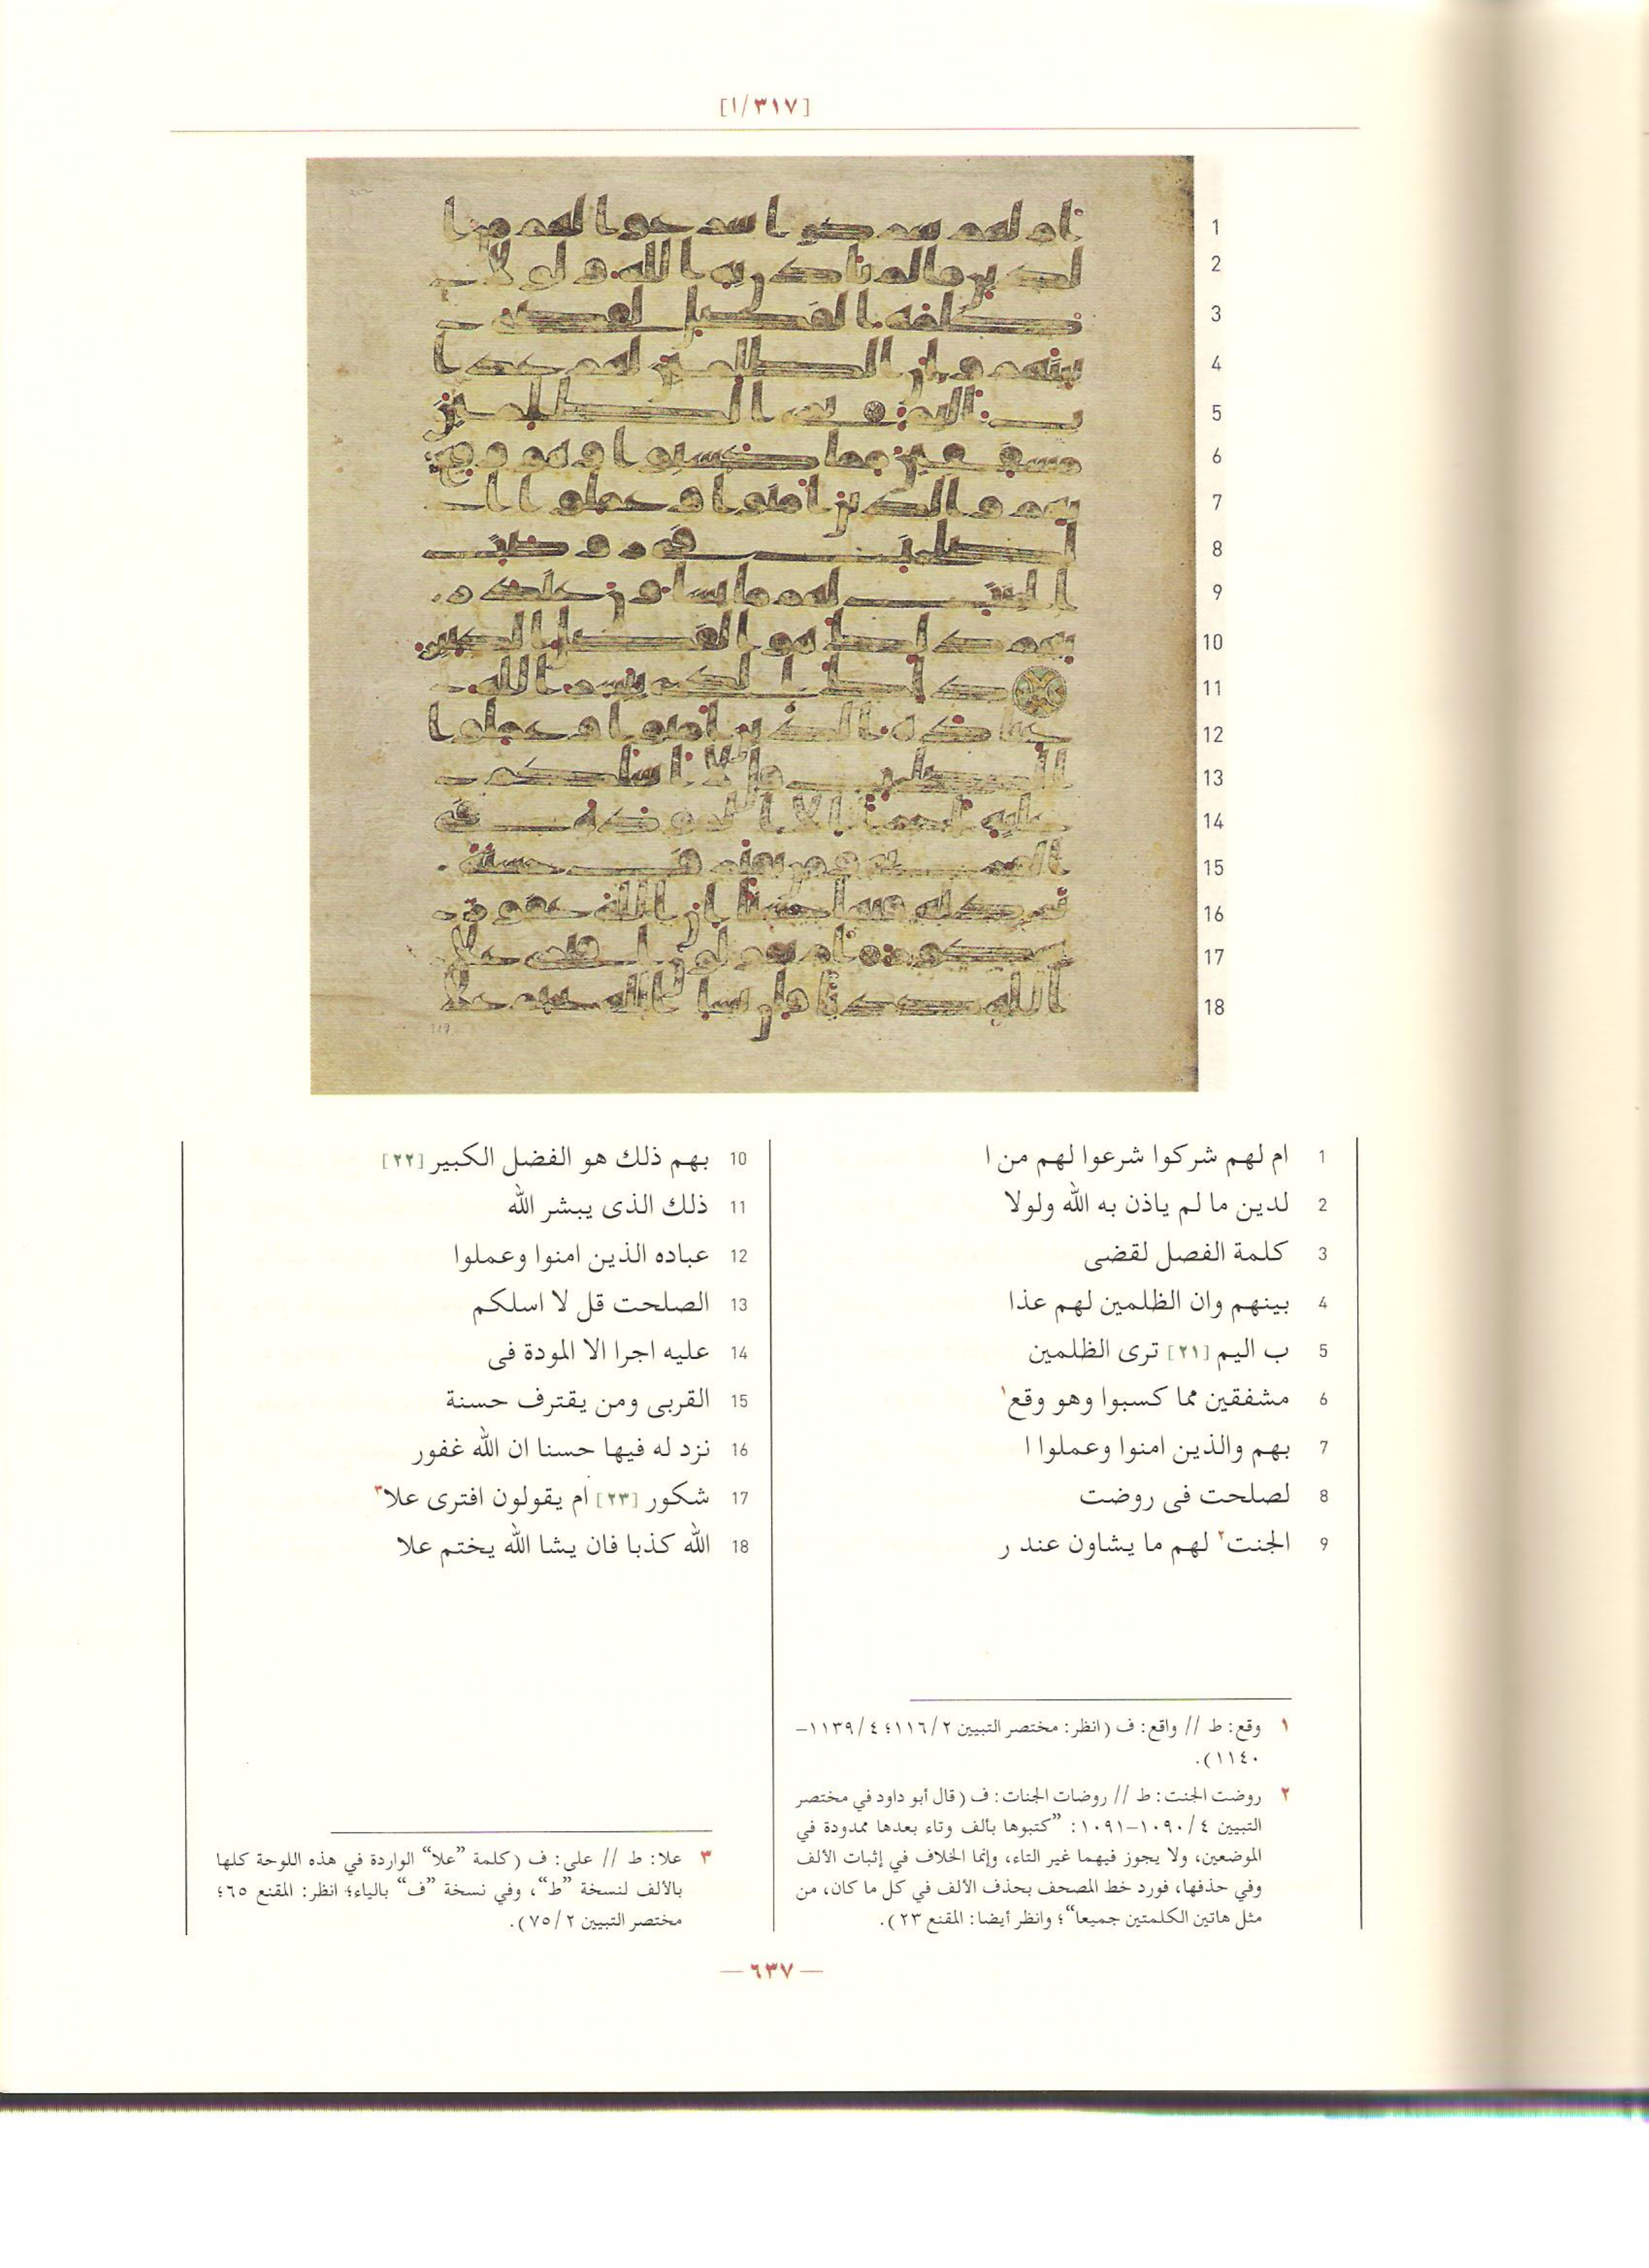 [٣١٧/ا]
1
2
3
4
5
6
7
8
9
10
11
12
13
14
15
16
17
18
1 ام لهم شركوا شرعوا لهم من ا
2 لدين ما لم ياذن به الله ولولا
3 كلمة الفصل لقضى
4 بينهم وان الظلمين لهم عذا
5 ب اليم [٢١] ترى الظلمين
6 مشفقين مما كسبوا وهو وقع١
7 بهم والذين امنوا وعملوا ا
8 لصلحت فى روضت
9 الجنت٢ لهم ما يشاون عند ر
10 بهم ذلك هو الفضل الكبير [٢٢]
11 ذلك الذى يبشر الله
12 عباده الذين امنوا وعملوا
13 الصلحت قل لا اسلكم
14 عليه اجرا الا المودة فى
15 القربى ومن يقترف حسنة
16 نزد له فيها حسنا ان الله غفور
17 شكور [٢٣] ام يقولون افترى علا٣
18 الله كذبا فان يشا الله يختم علا
١ وقع: ط // واقع: ف (انظر: مختصر التبيين ١١٦/٢؛ ١١٣٩/٤–
١١٤٠).
٢ روضت الجنت: ط // روضات الجنات: ف (قال أبو داود في مختصر
التبيين ١٠٩٠/٤–١٠٩١: ”كتبوها بألف وتاء بعدها ممدودة في
الموضعين، ولا يجوز فيهما غير التاء، وإنما الخلاف في إثبات الألف
وفي حذفها، فورد خط المصحف بحذف الألف في كل ما كان، من
مثل هاتين الكلمتين جميعا“؛ وانظر أيضا: المقنع ٢٣).
٣ علا: ط // على: ف (كلمة ”علا“ الواردة في هذه اللوحة كلها
بالألف لنسخة ”ط“، وفي نسخة ”ف“ بالياء؛ انظر: المقنع ٦٥؛
مختصر التبيين ٧٥/٢).
— ٦٣٧ —